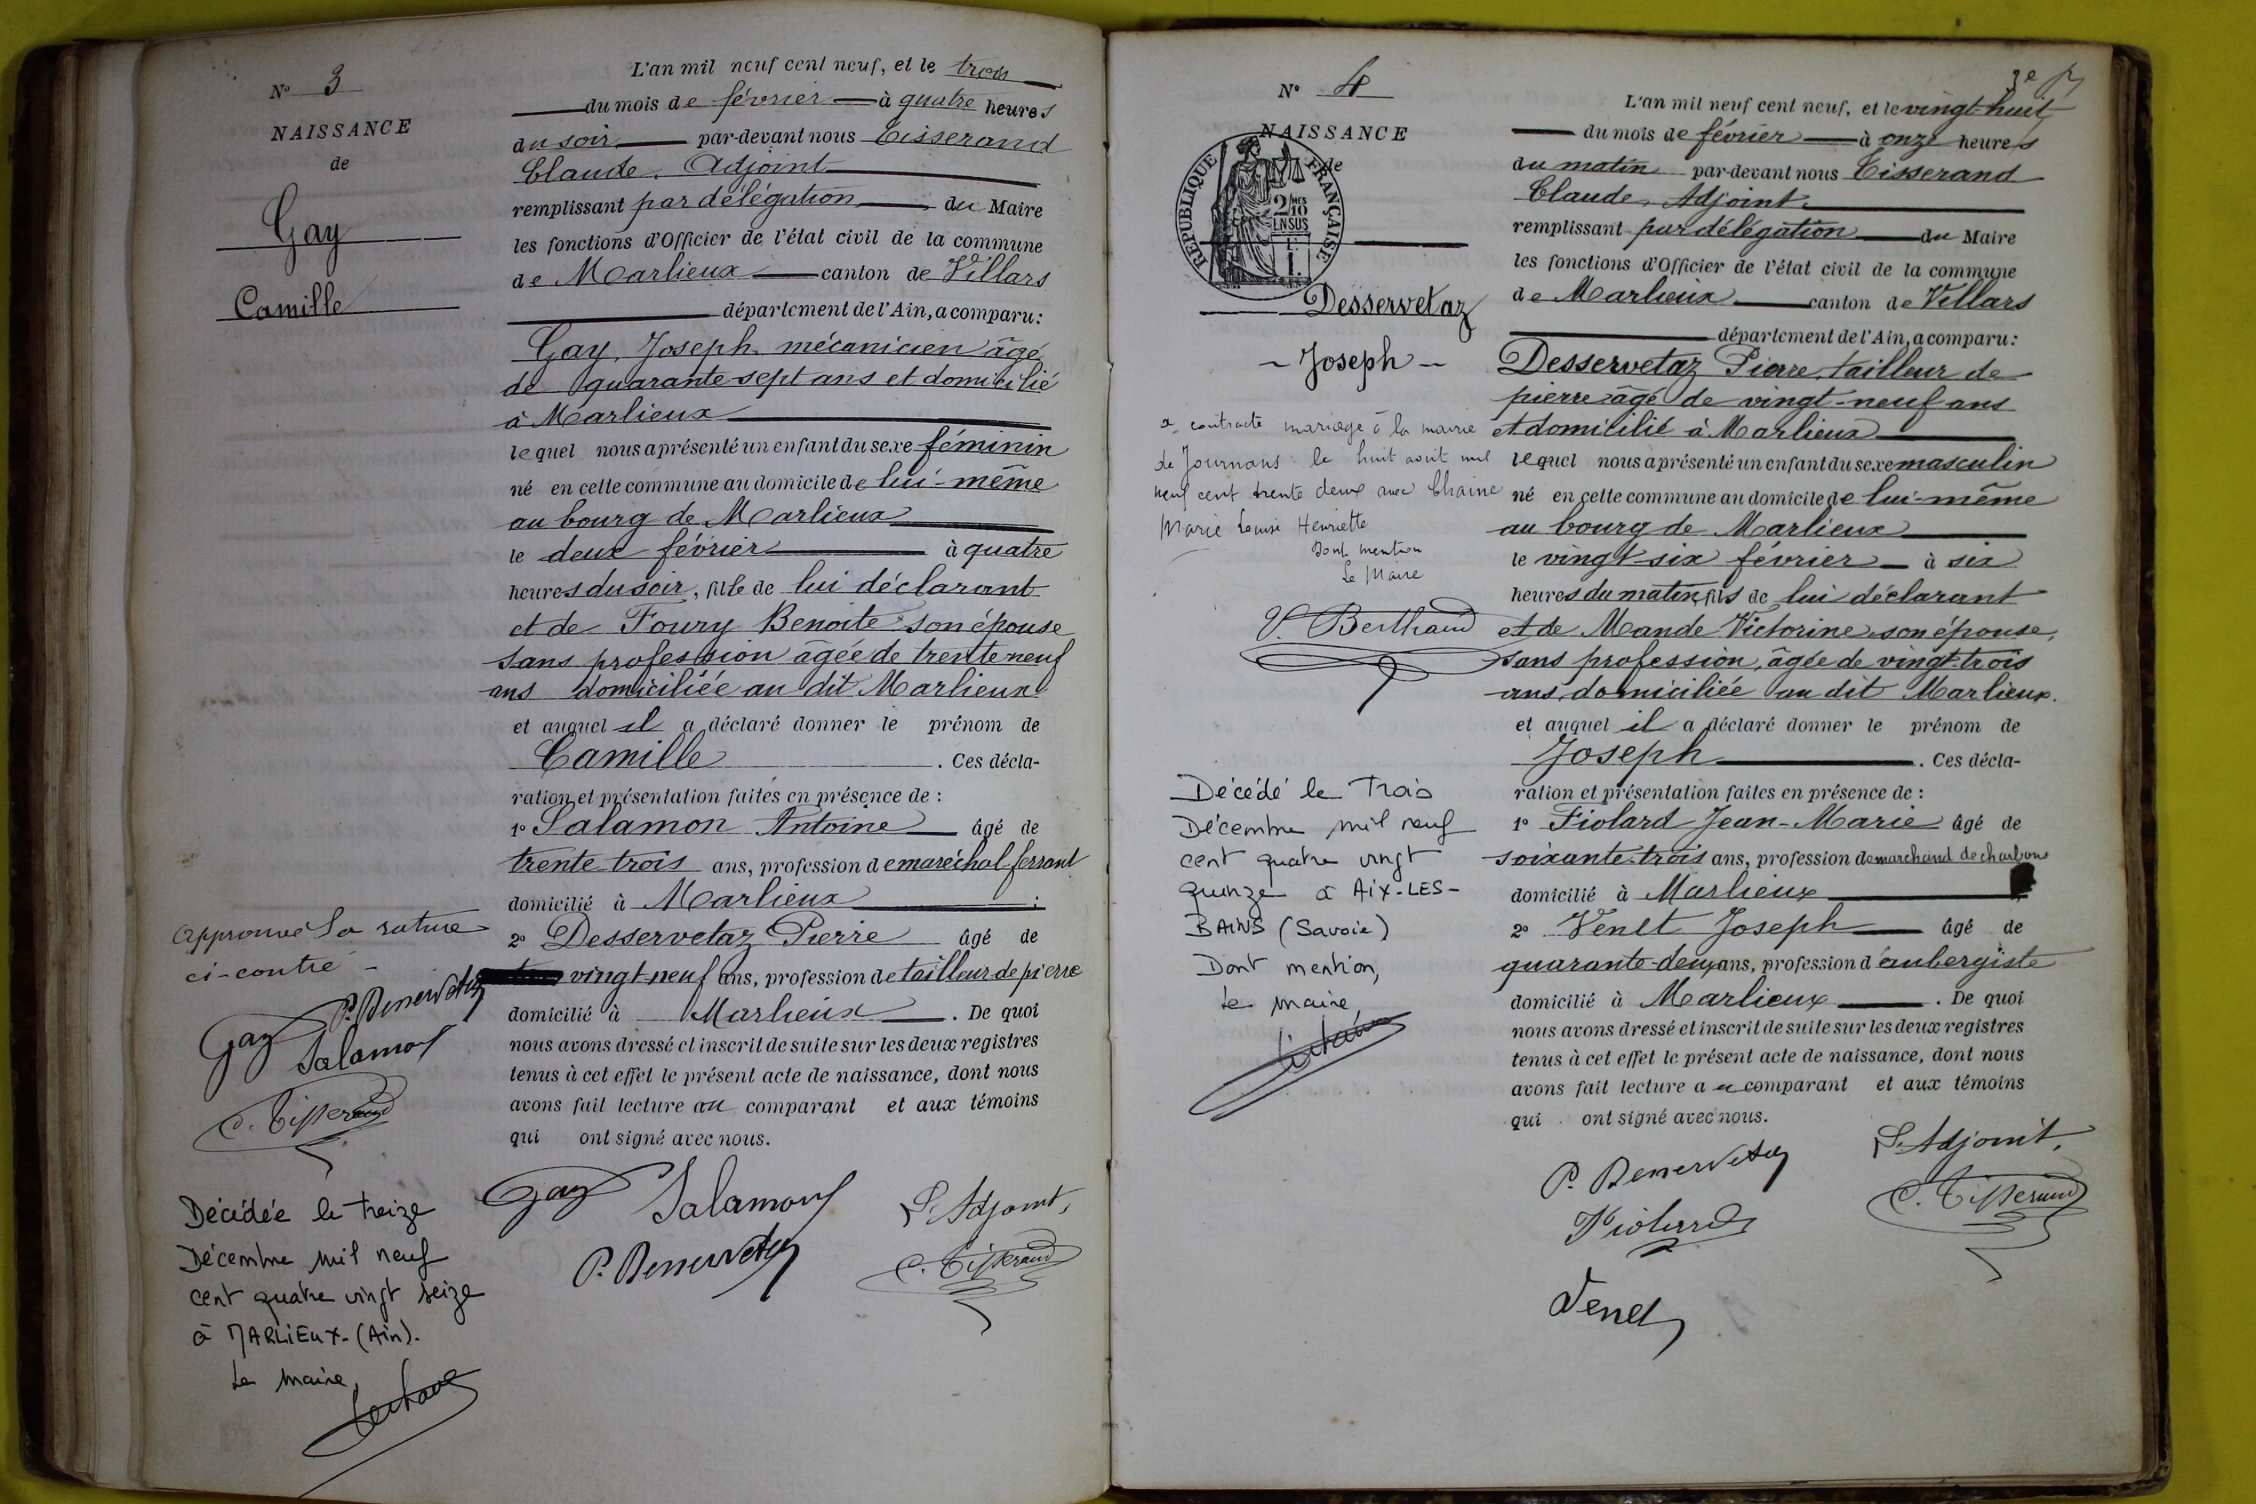 N° 3
NAISSANCE
de
Gay
Camille
L'an mil neuf cent neuf, et le trois
du mois de février à quatre heures
du soir par-devant nous Tisserand
Claude, Adjoint
remplissant par délégation du Maire
les fonctions d'Officier de l'état civil de la commune
de Marlieux canton de Villars
département de l'Ain, a comparu:
Gay, Joseph, mécanicien âgé
de quarante-sept ans et domicilié
à Marlieux
lequel nous a présenté un enfant du sexe féminin
né en cette commune au domicile de lui-même
au bourg de Marlieux
le deux février à quatre
heures du soir, fille de lui déclarant
et de Foury Benoite son épouse
sans profession âgée de trente neuf
ans domiciliée au dit Marlieux
et auquel il a déclaré donner le prénom de
Camille. Ces décla-
ration et présentation faites en présence de :
1° Salamon Antoine âgé de
trente-trois ans, profession de maréchal ferrant
domicilié à Marlieux ;
2° Desservetaz Pierre âgé de
vingt-neuf ans, profession de tailleur de pierre
domicilié à Marlieux. De quoi
nous avons dressé et inscrit de suite sur les deux registres
tenus à cet effet le présent acte de naissance, dont nous
avons fait lecture au comparant et aux témoins
qui ont signé avec nous.
Gay Salamon L'Adjoint,
P. Desservetaz C. Tisserand
Approuvé la rature
ci-contre
P. Desservetaz
Gay
Salamon
C. Tisserand
Décédée le treize
Décembre mil neuf
cent quatre vingt seize
à MARLIEUX-(Ain).
Le maire,
3e
N° 4
NAISSANCE
de
RÉPUBLIQUE FRANÇAISE
2/10
EN SUS
Desservetaz
- Joseph -
L'an mil neuf cent neuf, et le vingt-huit
du mois de février à onze heures
du matin par-devant nous Tisserand
Claude, Adjoint.
remplissant par délégation du Maire
les fonctions d'Officier de l'état civil de la commune
de Marlieux canton de Villars
département de l'Ain, a comparu:
Desservetaz Pierre, tailleur de
pierre âgé de vingt-neuf ans
et domicilié à Marlieux
lequel nous a présenté un enfant du sexe masculin
né en cette commune au domicile de lui-même
au bourg de Marlieux
le vingt-six février à six
heures du matin, fils de lui déclarant
et de Mande Victorine son épouse,
sans profession, âgée de vingt-trois
ans, domiciliée au dit Marlieux.
et auquel il a déclaré donner le prénom de
Joseph. Ces décla-
ration et présentation faites en présence de :
1° Fiolard Jean-Marie âgé de
soixante-trois ans, profession de marchand de charbons
domicilié à Marlieux
2° Venet Joseph âgé de
quarante-deux ans, profession d'aubergiste
domicilié à Marlieux. De quoi
nous avons dressé et inscrit de suite sur les deux registres
tenus à cet effet le présent acte de naissance, dont nous
avons fait lecture au comparant et aux témoins
qui ont signé avec nous.
P. Desservetaz L'Adjoint,
Fiolard C. Tisserand
Venet
a contracté mariage à la mairie
de Journans le huit août mil
neuf cent trente deux avec Chaine
Marie Louise Henriette
Dont mention
Le Maire
V. Berthaud
Décédé le Trois
Décembre mil neuf
cent quatre vingt
quinze à AIX-LES-
BAINS (Savoie)
Dont mention,
Le maire,